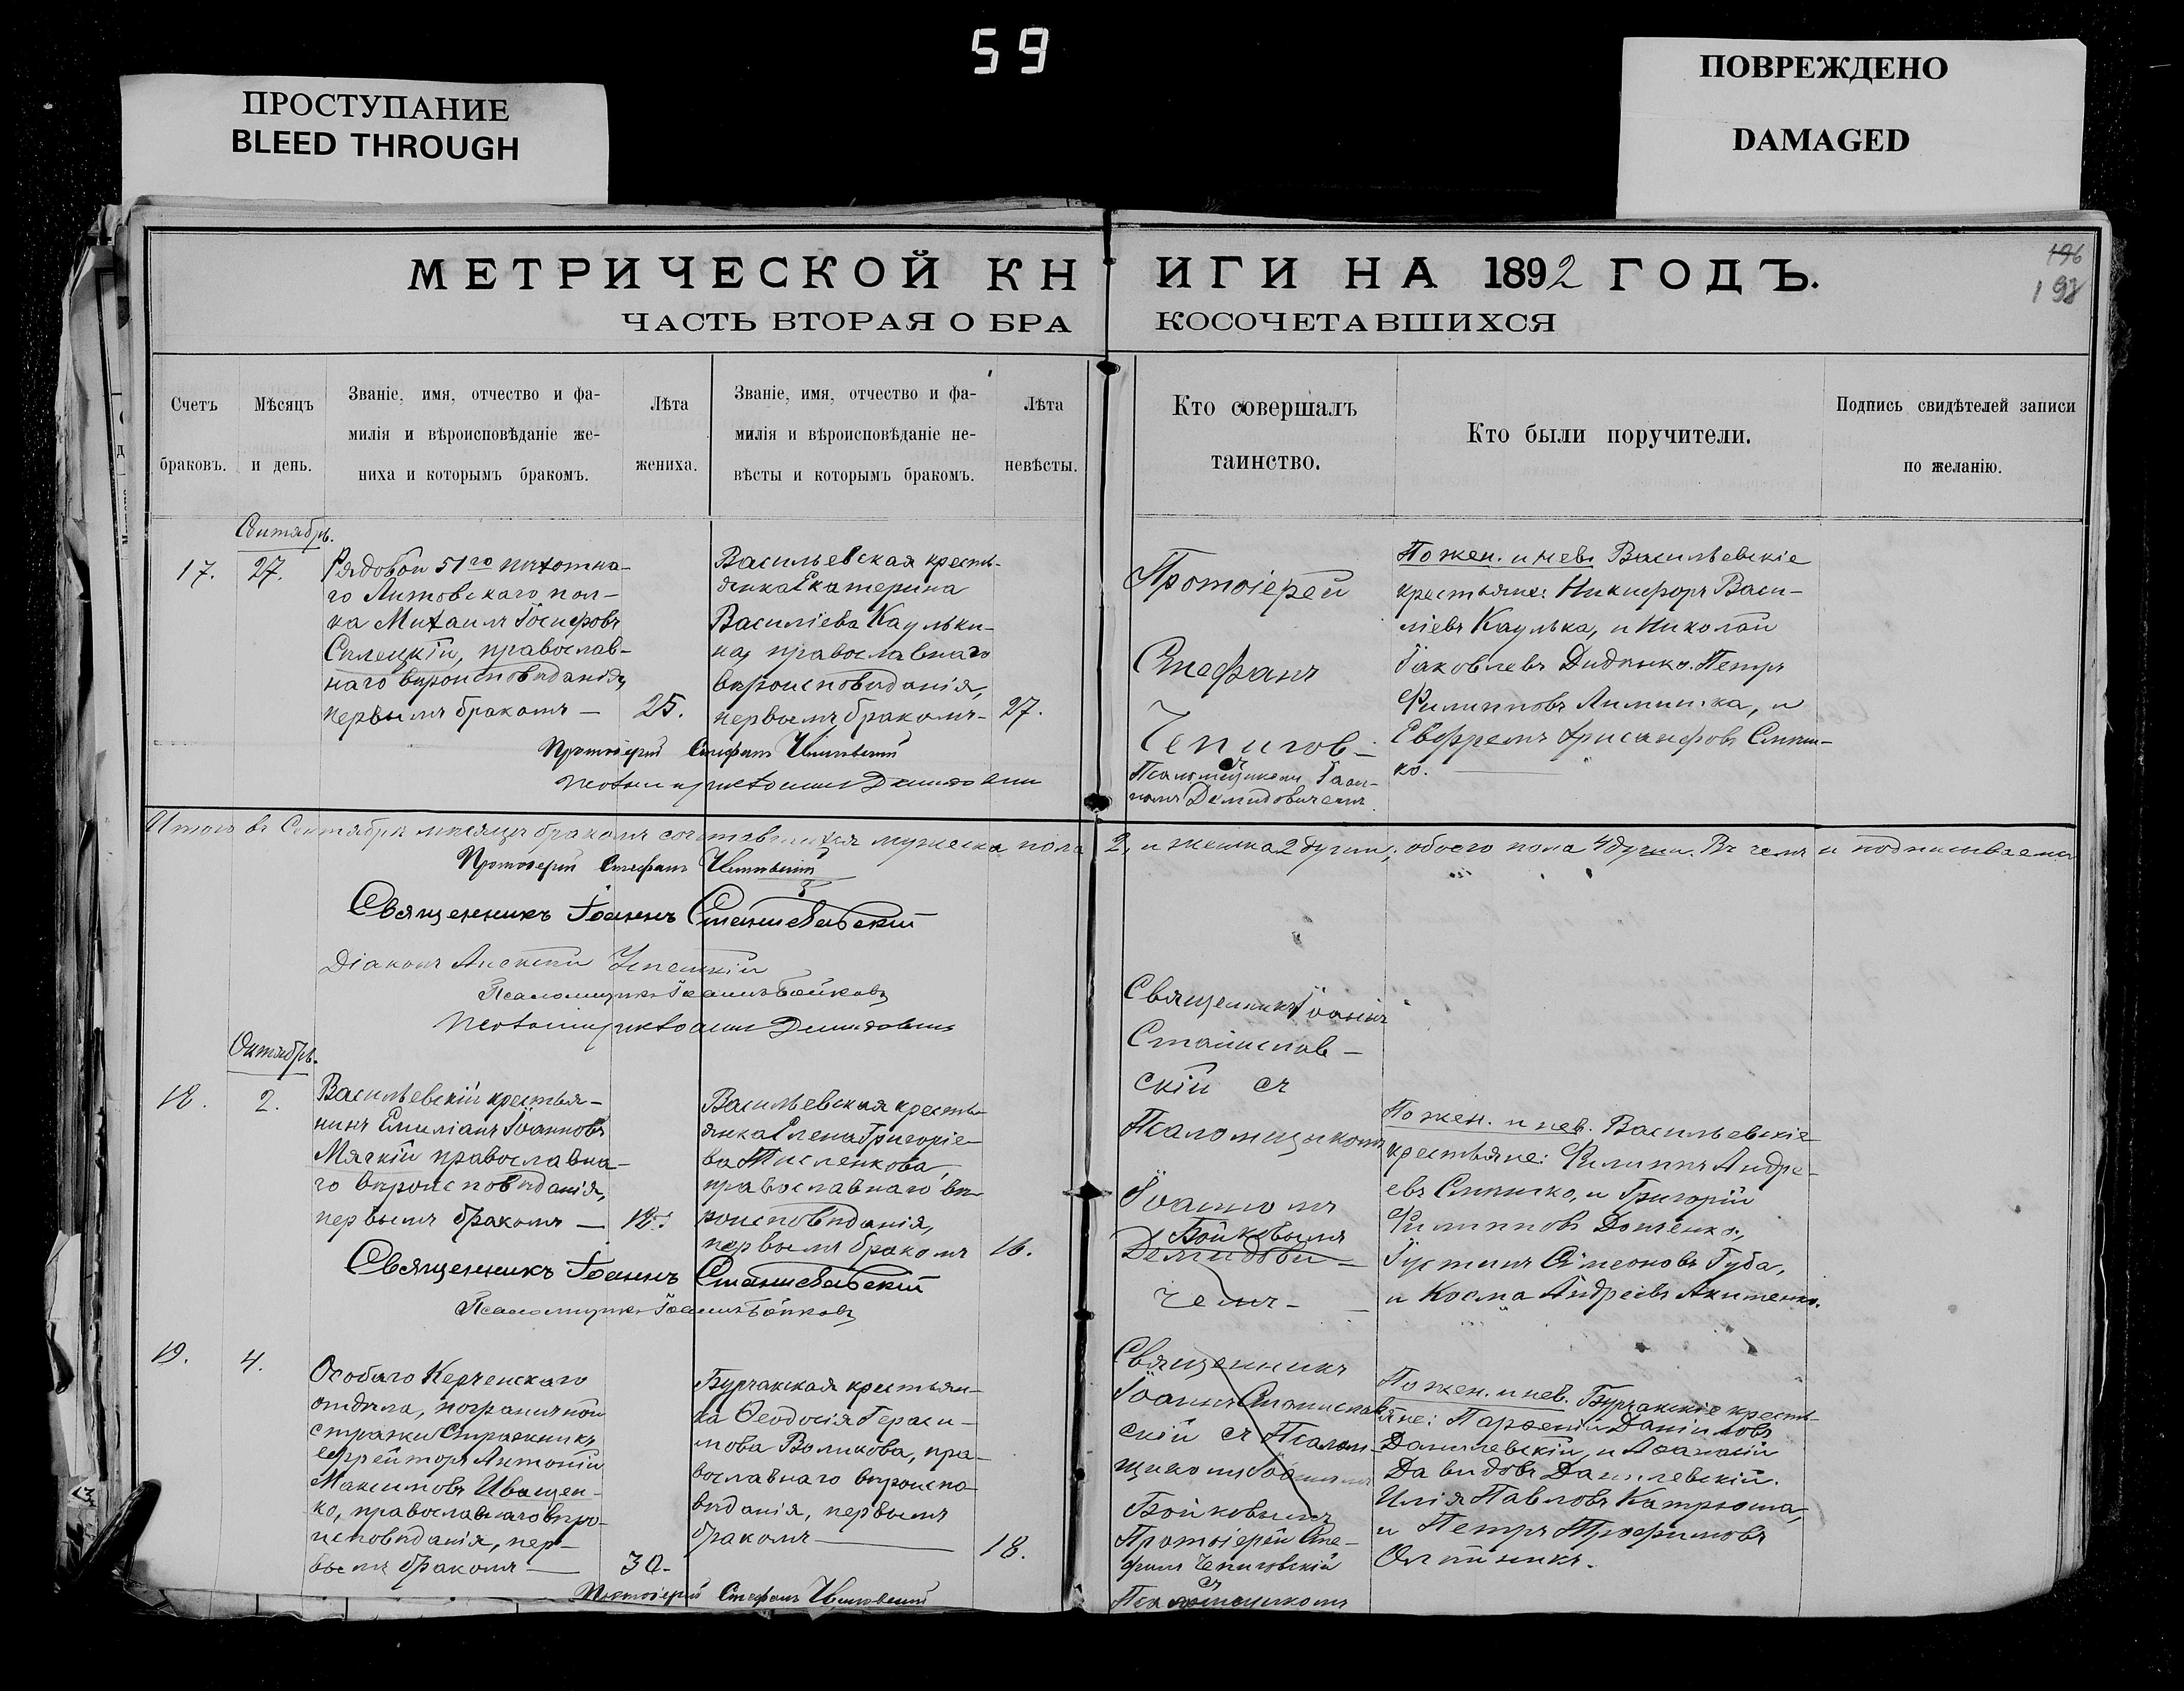 59
ПРОСТУПАНИЕ
BLEED THROUGH
ПОВРЕЖДЕНО
DAMAGED
196
198
МЕТРИЧЕСКОЙ КНИГИ НА 1892 ГОДЪ.
ЧАСТЬ ВТОРАЯ О БРАКОСОЧЕТАВШИХСЯ
Счетъ
браковъ.
Мѣсяцъ
и день.
Званіе, имя, отчество и фа-
милія и вѣроисповѣданіе же-
ниха и которымъ бракомъ.
Лѣта
жениха.
Званіе, имя, отчество и фа-
милія и вѣроисповѣданіе не-
вѣсты и которымъ бракомъ.
Лѣта
невѣсты.
Кто совершалъ
таинство.
Кто были поручители.
Подпись свидѣтелей записи
по желанію.
Сентябрь.
17.
27.
Рядовой 51го пѣхотна-
го Литовскаго пол-
ка Михаилъ Іосифовъ
православ-
наго вѣроисповѣданія,
первымъ бракомъ —
25.
Васильевская кресть-
янка Екатерина
Василіева Каульки-
на, православнаго
вѣроисповѣданія,
первымъ бракомъ —
27.
Протоіерей
Стефанъ
съ
Псаломщикомъ
Демидовичемъ
По жен. и нев. Васильевскіе
крестьяне: Никифоръ Васи-
ліевъ Каулька, и Николай
Іаковлевъ Диденко. Петръ
Филипповъ и
Ефремъ
ко.
Протоіерей Стефанъ
Псаломщикъ Демидовичъ
Итого въ Сентябрѣ мѣсяцѣ бракомъ сочетавшихся мужеска пола 2, и женска 2 души; обоего пола 4 души. Въ чемъ и подписываемся
Протоіерей Стефанъ
Священникъ Іоаннъ Станиславскій
Діаконъ Алексій
Псаломщикъ Іоаннъ Бойковъ
Псаломщикъ Демидовичъ
Октябрь.
18.
2.
Васильевскій крестья-
нинъ Емиліанъ Іоанновъ
Мягкій православна-
го вѣроисповѣданія,
первымъ бракомъ —
18.
Васильевская кресть-
янка Елена Григоріе-
ва
православнаго вѣ-
роисповѣданія,
первымъ бракомъ
16.
Священникъ Іоаннъ
Станислав-
скій съ
Псаломщикомъ
Іоанномъ
Бойковымъ
Демидови-
чемъ —
По жен. и нев. Васильевскіе
крестьяне: Филиппъ Андре-
евъ и Григорій
Филипповъ
Іустинъ Симеоновъ Губа,
и Косма Андреевъ
Священникъ Іоаннъ Станиславскій
Псаломщикъ Іоаннъ Бойковъ
19.
4.
Особаго Керченскаго
отдѣла, пограничной
стражи Стражникъ
ефрейторъ Антоній
Максимовъ Иващен-
ко, православнаго вѣро-
исповѣданія, пер-
вымъ бракомъ —
30.
Бурчакская крестьян-
ка Ѳеодосія Гераси-
мова Воликова, пра-
вославнаго вѣроиспо-
вѣданія, первымъ
бракомъ —
18.
Священникъ
Іоаннъ Станислав-
скій съ Псалом-
щикомъ Іоанномъ
Бойковымъ
Протоіерей Сте-
фанъ
съ
Псаломщикомъ
По жен. и нев. Бурчакскіе кресть-
яне: Парѳеній Даніиловъ
Данилевскій, и Аѳанасій
Давидовъ Данилевскій.
Илія Павловъ Катрюша,
и Петръ Трофимовъ
Протоіерей Стефанъ